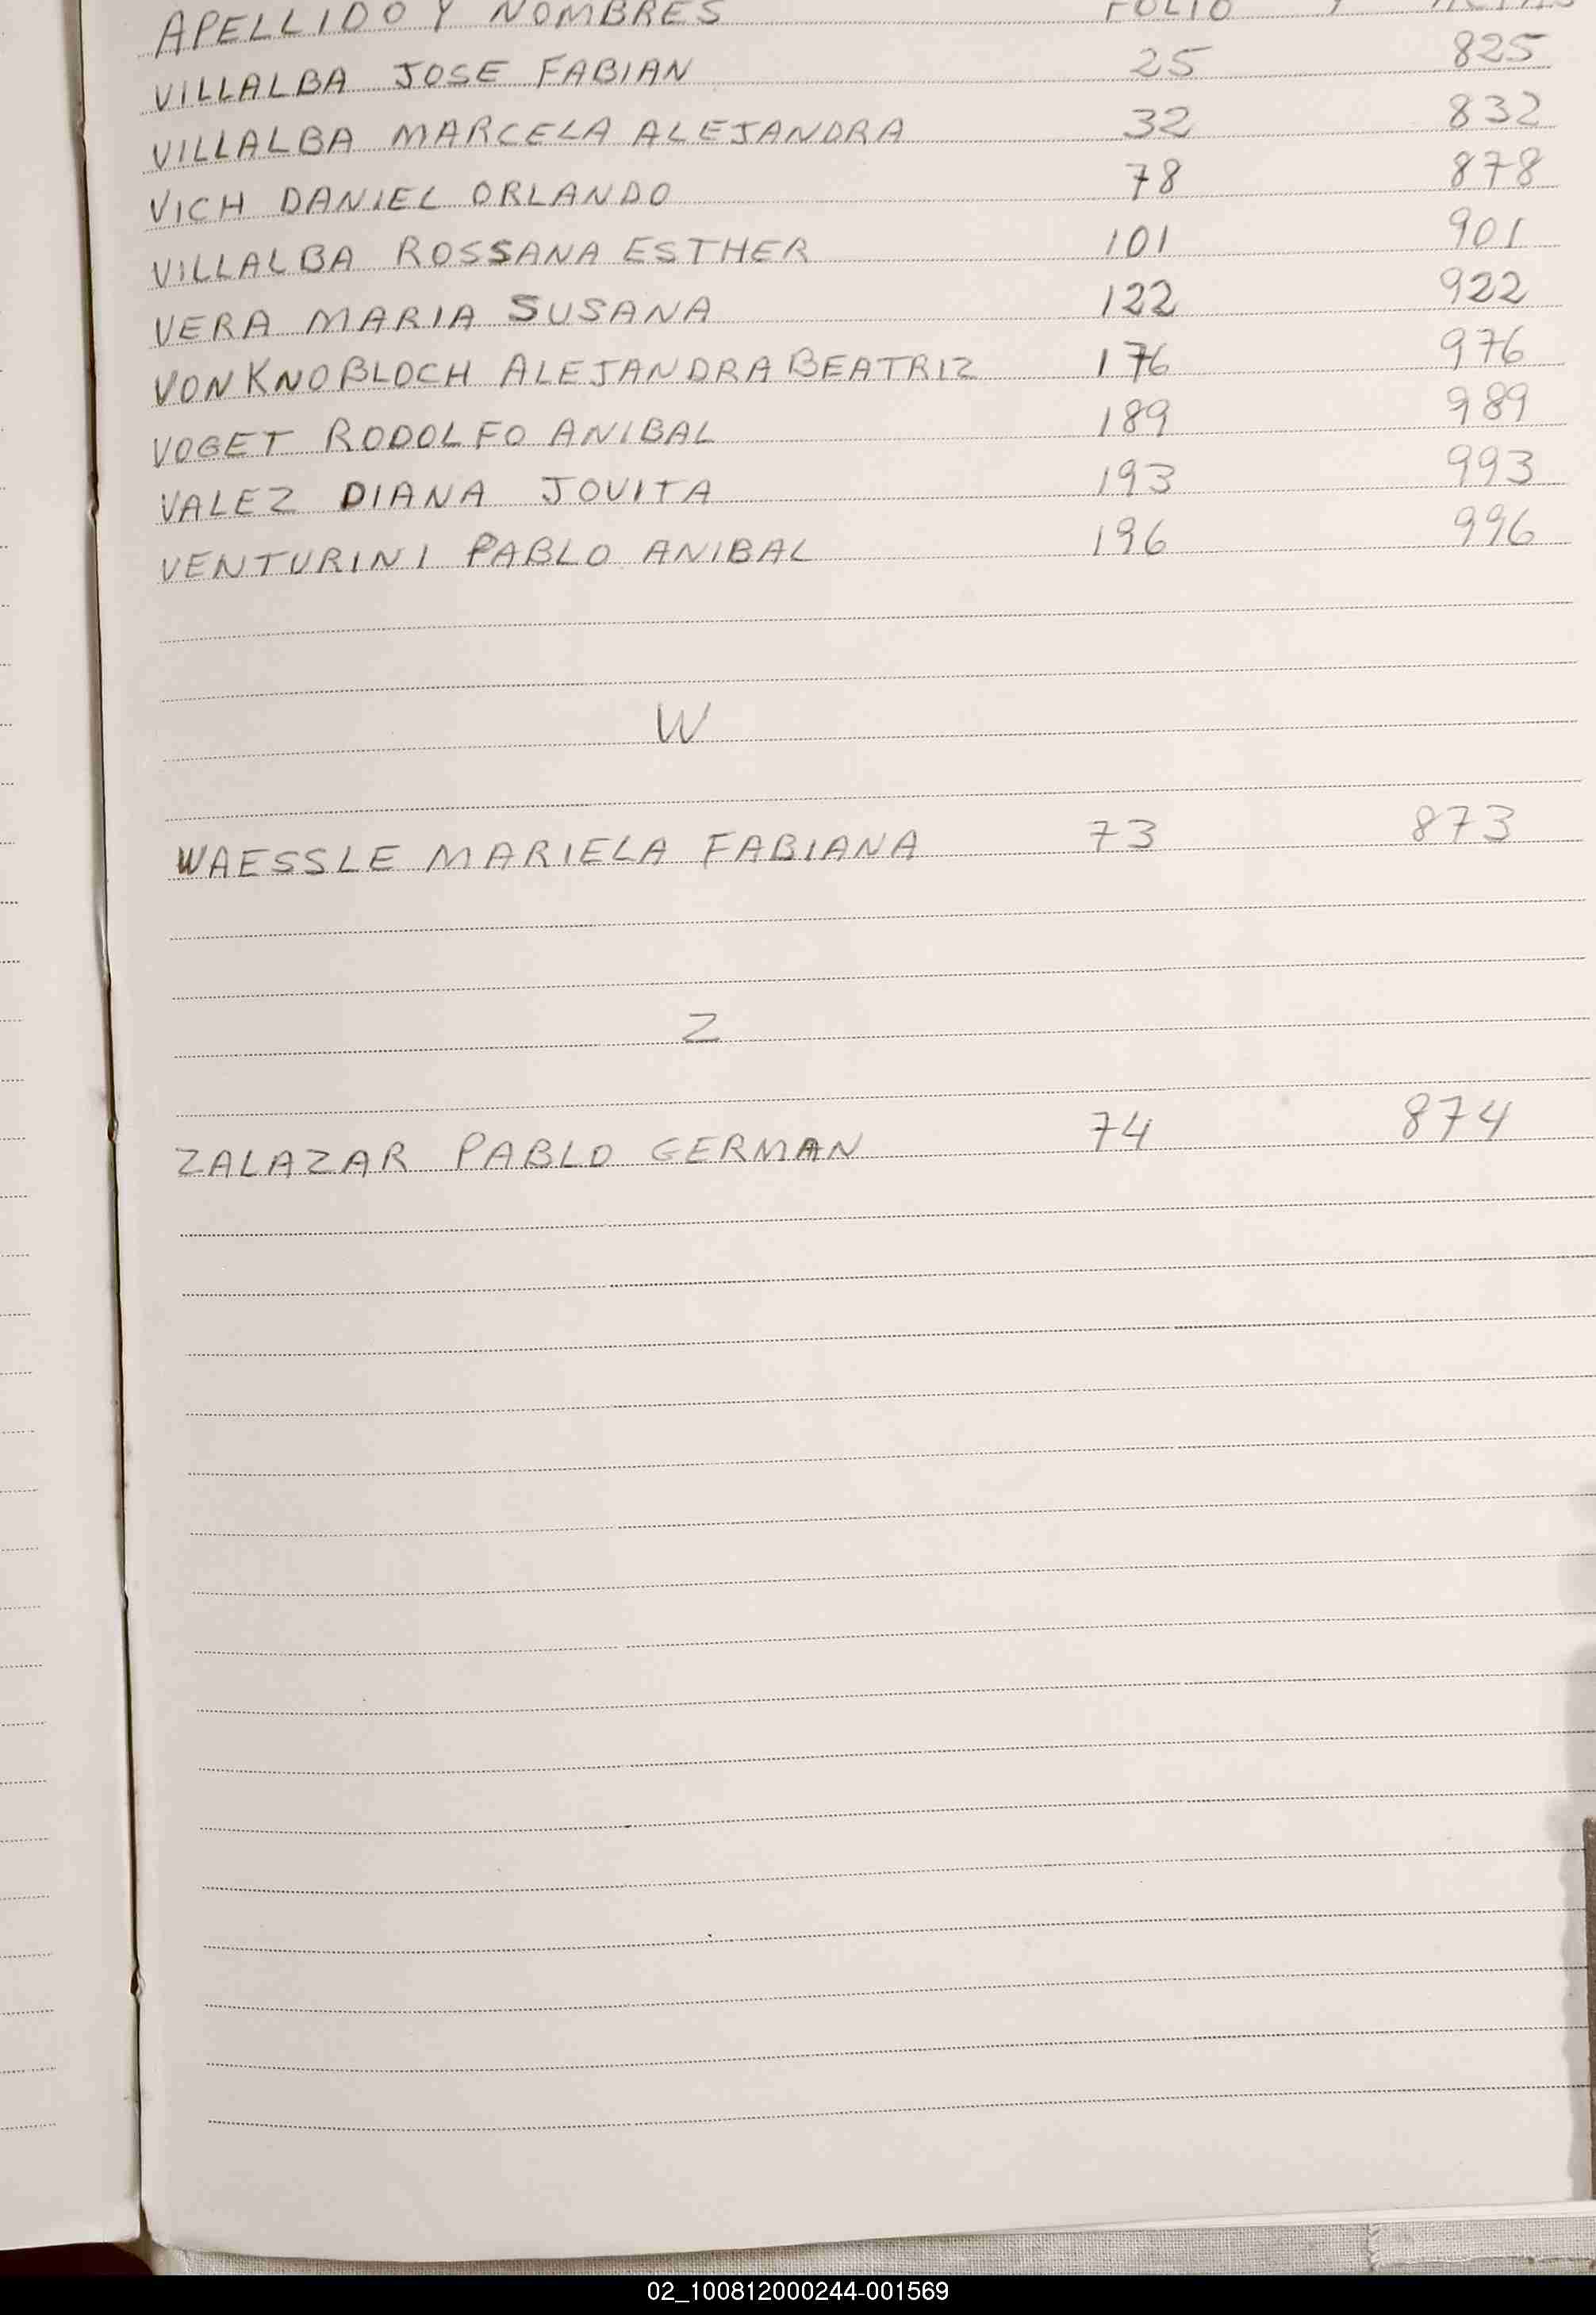 APELLIDO Y NOMBRES FOLIO Y ACTAS
VILLALBA JOSE FABIAN 25 825
VILLALBA MARCELA ALEJANDRA 32 832
VICH DANIEL ORLANDO 78 878
VILLALBA ROSSANA ESTHER 101 901
VERA MARIA SUSANA 122 922
VON KNOBLOCH ALEJANDRA BEATRIZ 176 976
VOGET RODOLFO ANIBAL 189 989
VALEZ DIANA JOVITA 193 993
VENTURINI PABLO ANIBAL 196 996
W
WAESSLE MARIELA FABIANA 73 873
Z
ZALAZAR PABLO GERMAN 74 874
02_100812000244-001569